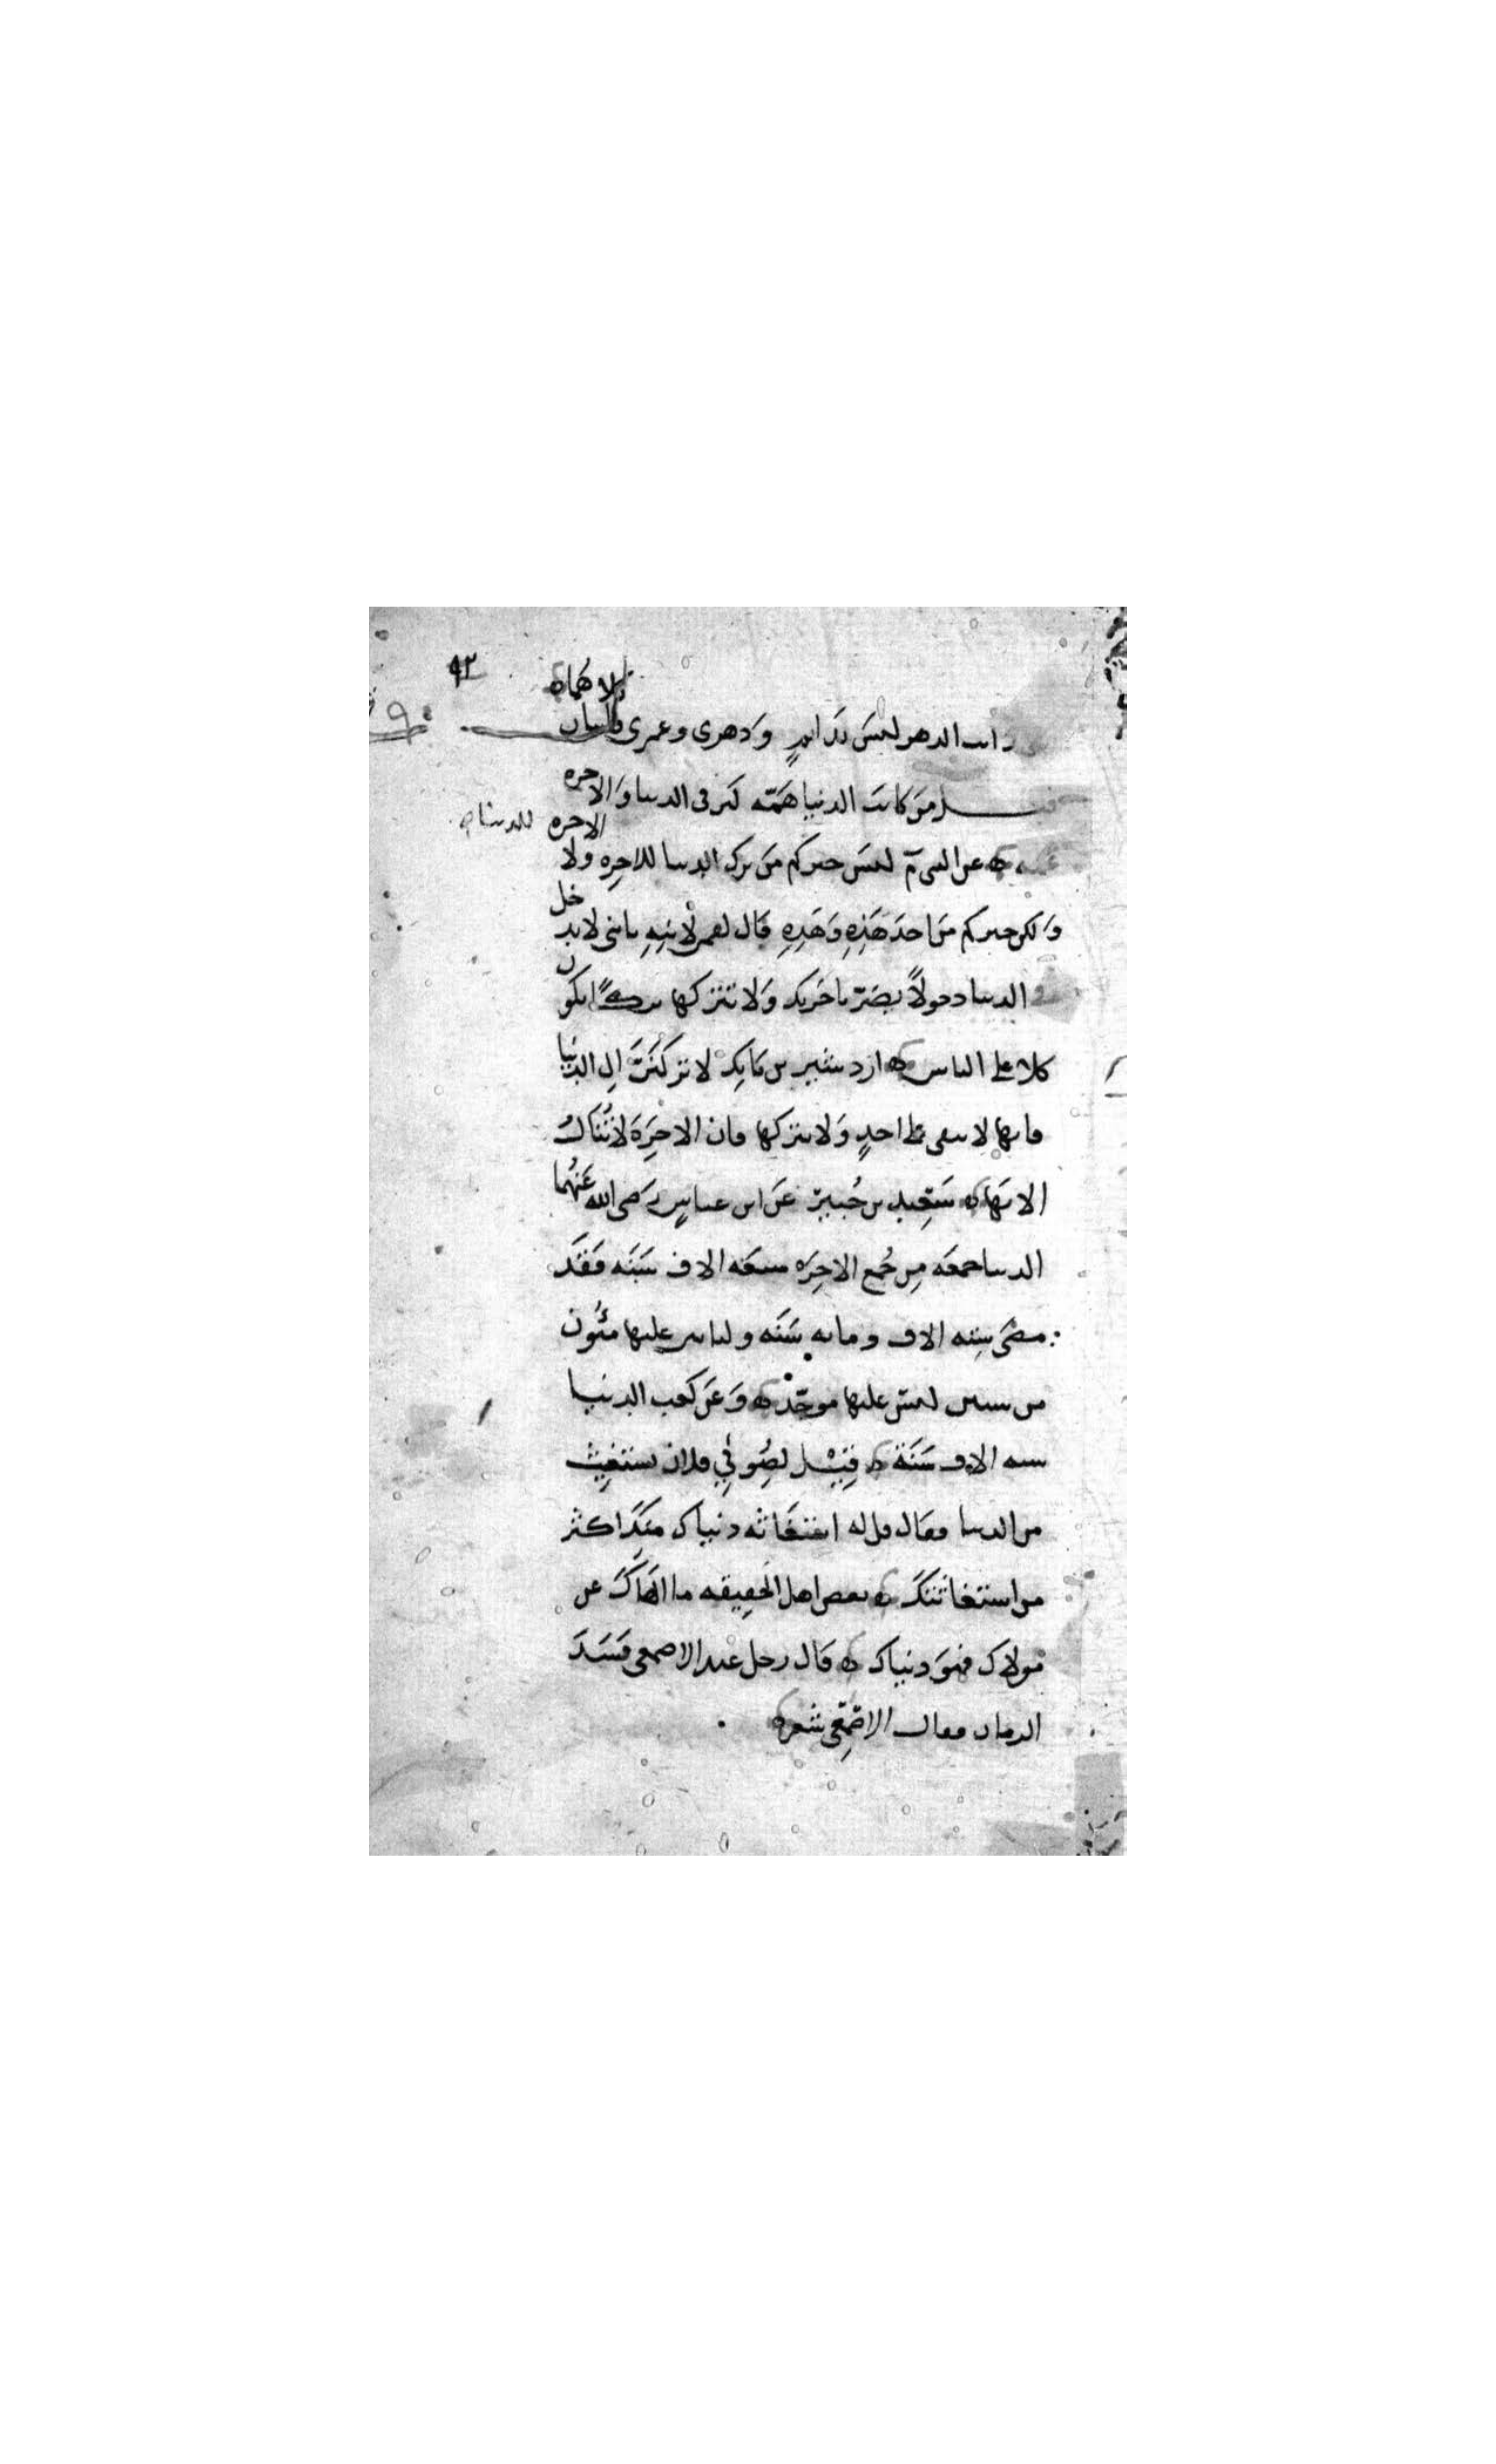 ٩٢
إلا هما
رايت الدهر ليس بدايم ودهرى وعمرى فانيان
من كانت الدنيا همته كثر فى الدنيا والاخره
عن النبى م ليس خيركم من ترك الدنيا للاخره ولا الاخره للدنيا
ولكن خيركم من اخذ هذه وهذه قال لقمن لابنه يا بنى لا تدخل
فى الدنيا دخولا يضر باخرتك ولا تتركها تركا تكون
كلا على الناس اردشير بن بابك لا تركنن الى الدنيا
فانها لا تبقى على احد ولا تتركها فان الاخرة لا تنال
الا بها سعيد بن جبير عن ابن عباس رضى الله عنهما
الدنيا جمعه من جمع الاخره سبعه الاف سنه فقد
مضى سته الاف ومايه سنه ولياتين عليها مئون
من سنين ليس عليها موحد وعن كعب الدنيا
سته الاف سنة قيل لصوفي فلان يستغيث
من الدنيا فقال قل له استغاثه دنياك منك اكثر
من استغاثتك بعض اهل الحقيقه ما الهاك عن
مولاك فهو دنياك قال رجل عند الاصمعى فسد
الزمان فقال الاصمعى شعر